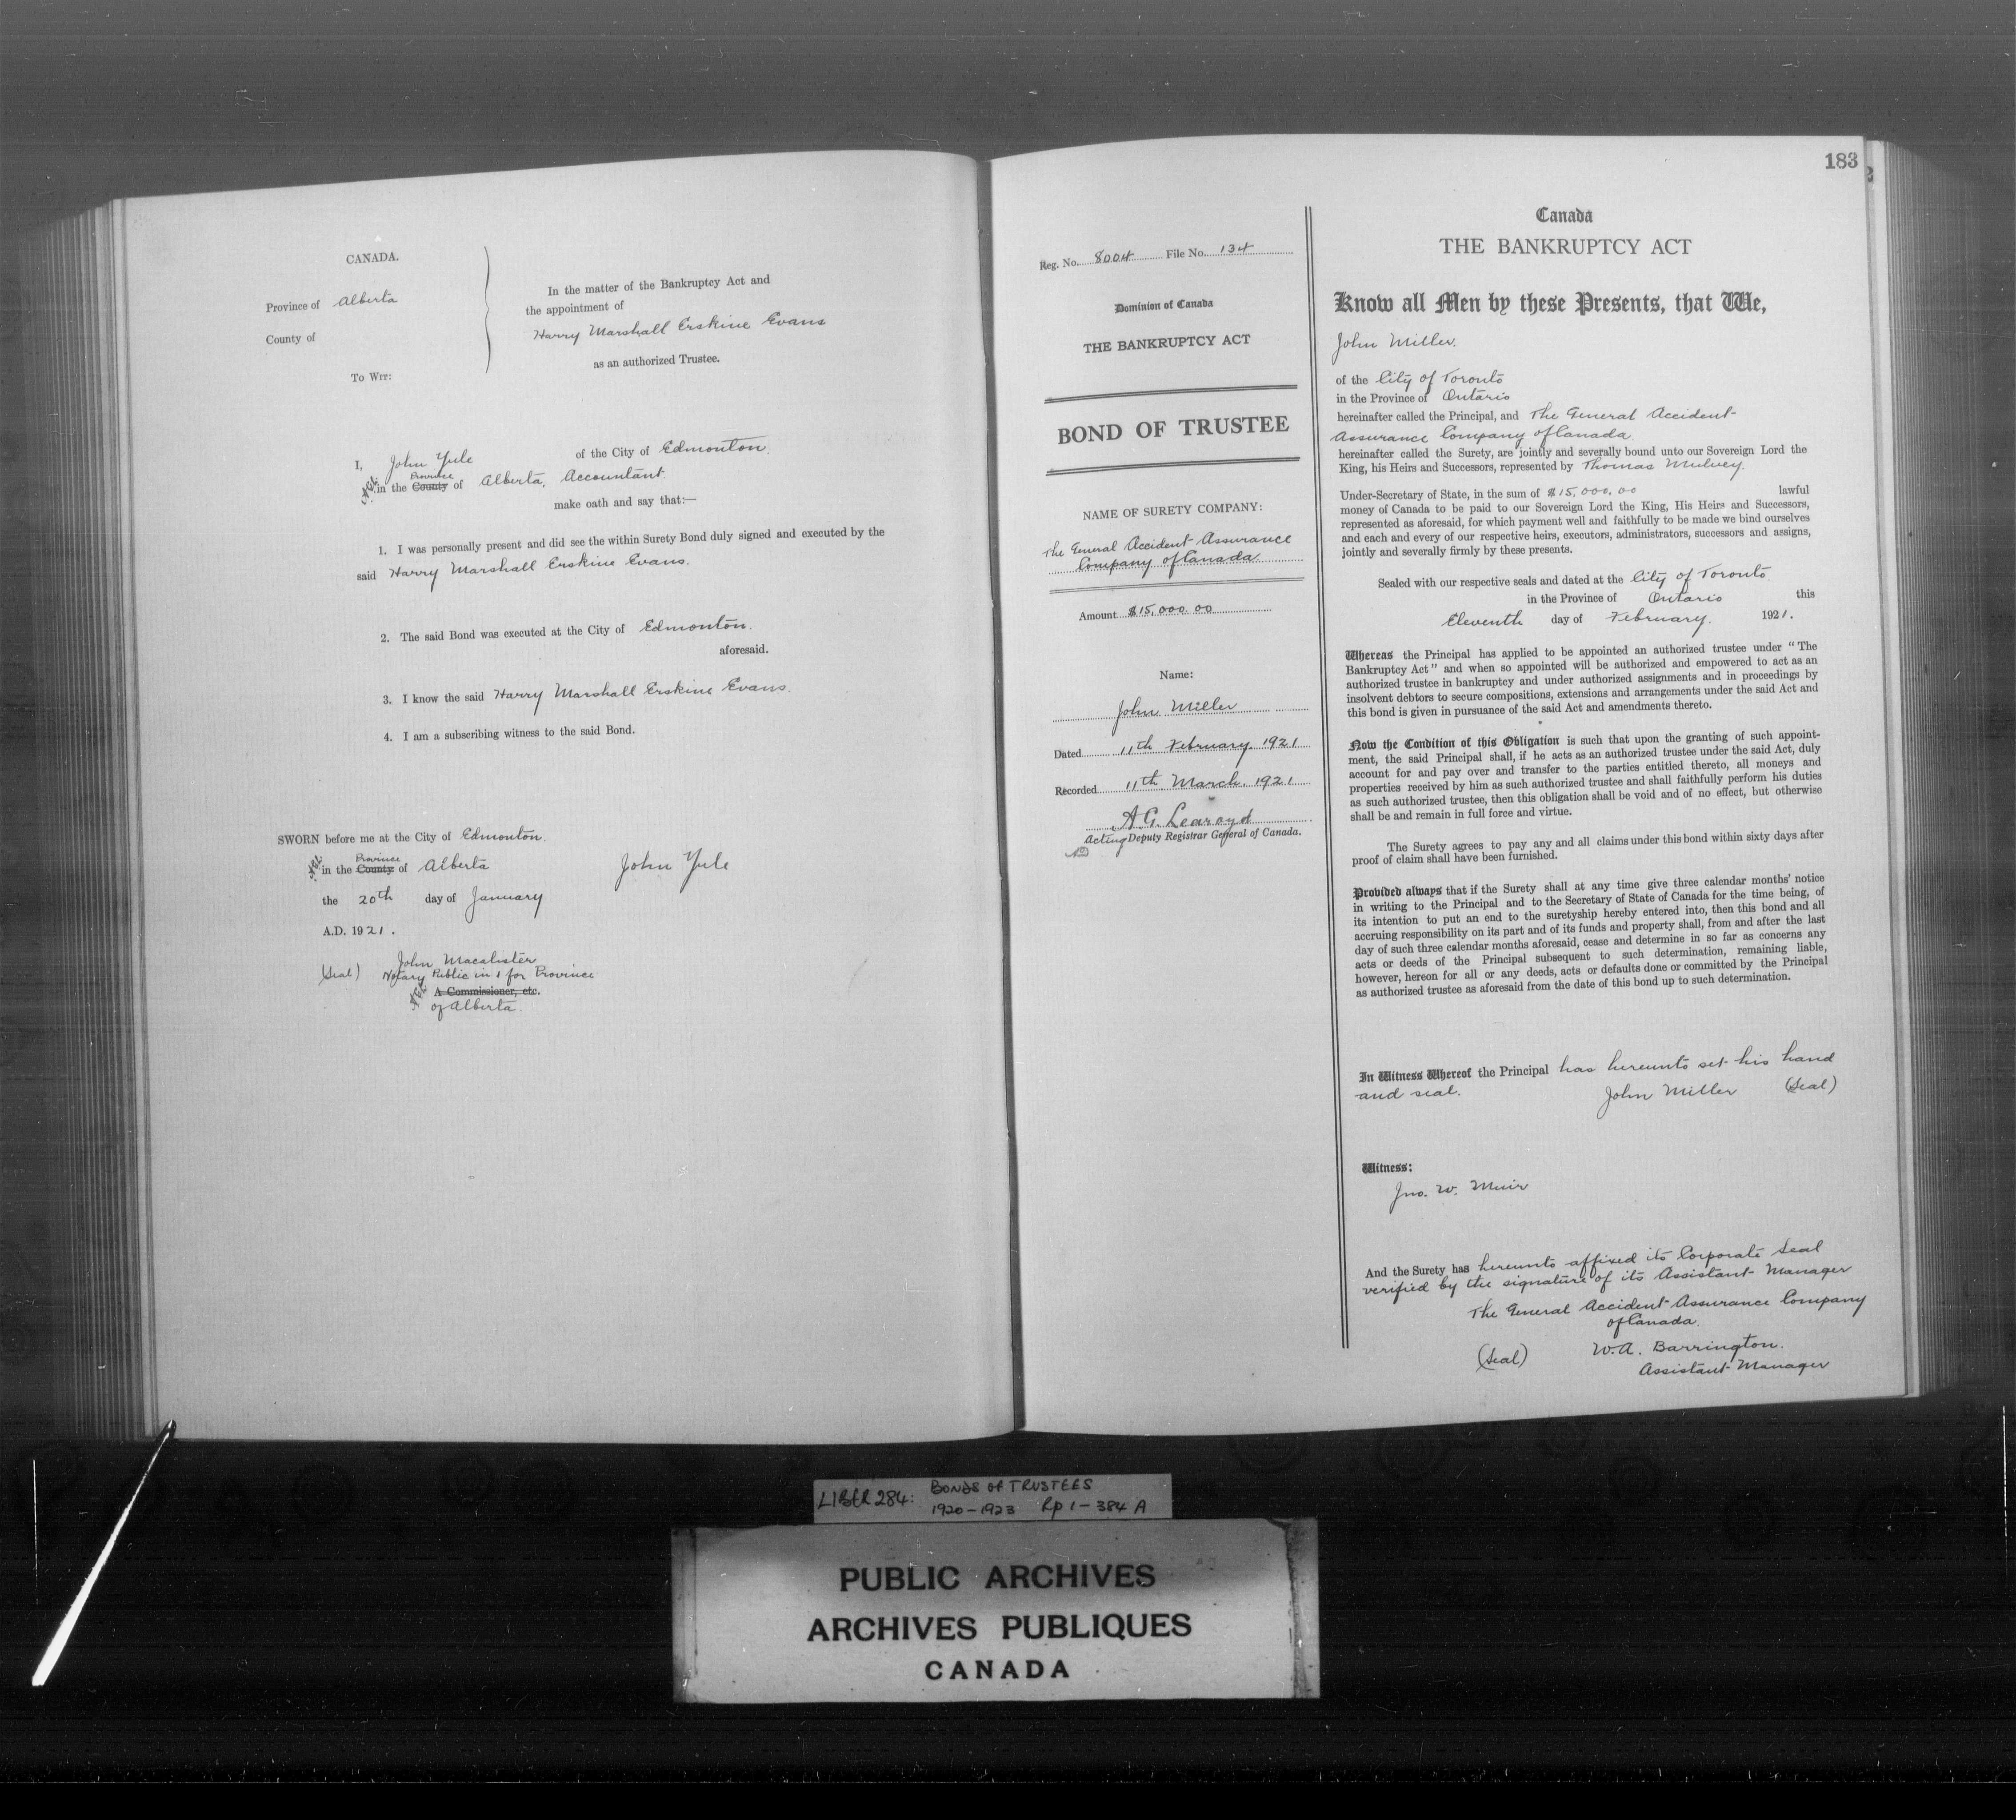 CANADA.
Province of Alberta
County of
To Wit:
In the matter of the Bankruptcy Act and
the appointment of
Harry Marshall Erskine Evans
as an authorized Trustee.
I, John Yule of the City of Edmonton.
Province
in the County of Alberta, Accountant.
make oath and say that:—
1. I was personally present and did see the within Surety Bond duly signed and executed by the
said Harry Marshall Erskine Evans.
2. The said Bond was executed at the City of Edmonton.
aforesaid.
3. I know the said Harry Marshall Erskine Evans.
4. I am a subscribing witness to the said Bond.
SWORN before me at the City of Edmonton.
Province
in the County of Alberta
the 20th day of January
A.D. 1921.
John Yule
(Seal) John Macalister
Notary Public in & for Province
A Commissioner, etc.
of Alberta.
Reg. No. 8004 File No. 134
Dominion of Canada
THE BANKRUPTCY ACT
BOND OF TRUSTEE
NAME OF SURETY COMPANY:
The General Accident Assurance
Company of Canada
Amount $15,000.00
Name:
John Miller
Dated 11th February 1921
Recorded 11th March. 1921
A.G. Learoyd
Acting Deputy Registrar General of Canada.
183
Canada
THE BANKRUPTCY ACT
Know all Men by these Presents, that We,
John Miller.
of the City of Toronto
in the Province of Ontario
hereinafter called the Principal, and The General Accident
Assurance Company of Canada.
hereinafter called the Surety, are jointly and severally bound unto our Sovereign Lord the
King, his Heirs and Successors, represented by Thomas Mulvey.
Under-Secretary of State, in the sum of $15,000.00 lawful
money of Canada to be paid to our Sovereign Lord the King, His Heirs and Successors,
represented as aforesaid, for which payment well and faithfully to be made we bind ourselves
and each and every of our respective heirs, executors, administrators, successors and assigns,
jointly and severally firmly by these presents.
Sealed with our respective seals and dated at the City of Toronto
in the Province of Ontario this
Eleventh day of February. 1921.
Whereas the Principal has applied to be appointed an authorized trustee under "The
Bankruptcy Act" and when so appointed will be authorized and empowered to act as an
authorized trustee in bankruptcy and under authorized assignments and in proceedings by
insolvent debtors to secure compositions, extensions and arrangements under the said Act and
this bond is given in pursuance of the said Act and amendments thereto.
Now the Condition of this Obligation is such that upon the granting of such appoint-
ment, the said Principal shall, if he acts as an authorized trustee under the said Act, duly
account for and pay over and transfer to the parties entitled thereto, all moneys and
properties received by him as such authorized trustee and shall faithfully perform his duties
as such authorized trustee, then this obligation shall be void and of no effect, but otherwise
shall be and remain in full force and virtue.
The Surety agrees to pay any and all claims under this bond within sixty days after
proof of claim shall have been furnished.
Provided always that if the Surety shall at any time give three calendar months' notice
in writing to the Principal and to the Secretary of State of Canada for the time being, of
its intention to put an end to the suretyship hereby entered into, then this bond and all
accruing responsibility on its part and of its funds and property shall, from and after the last
day of such three calendar months aforesaid, cease and determine in so far as concerns any
acts or deeds of the Principal subsequent to such determination, remaining liable,
however, hereon for all or any deeds, acts or defaults done or committed by the Principal
as authorized trustee as aforesaid from the date of this bond up to such determination.
In Witness Whereof the Principal has hereunto set his hand
and seal. John Miller (Seal)
Witness:
Jno. W. Muir
And the Surety has hereunto affixed its Corporate Seal
verified by the signature of its Assistant Manager
The General Accident Assurance Company
of Canada.
(Seal) W.A. Barrington.
Assistant Manager
LIBER 284: BONDS OF TRUSTEES
1920-1923 Rp 1-384 A
PUBLIC ARCHIVES
ARCHIVES PUBLIQUES
CANADA